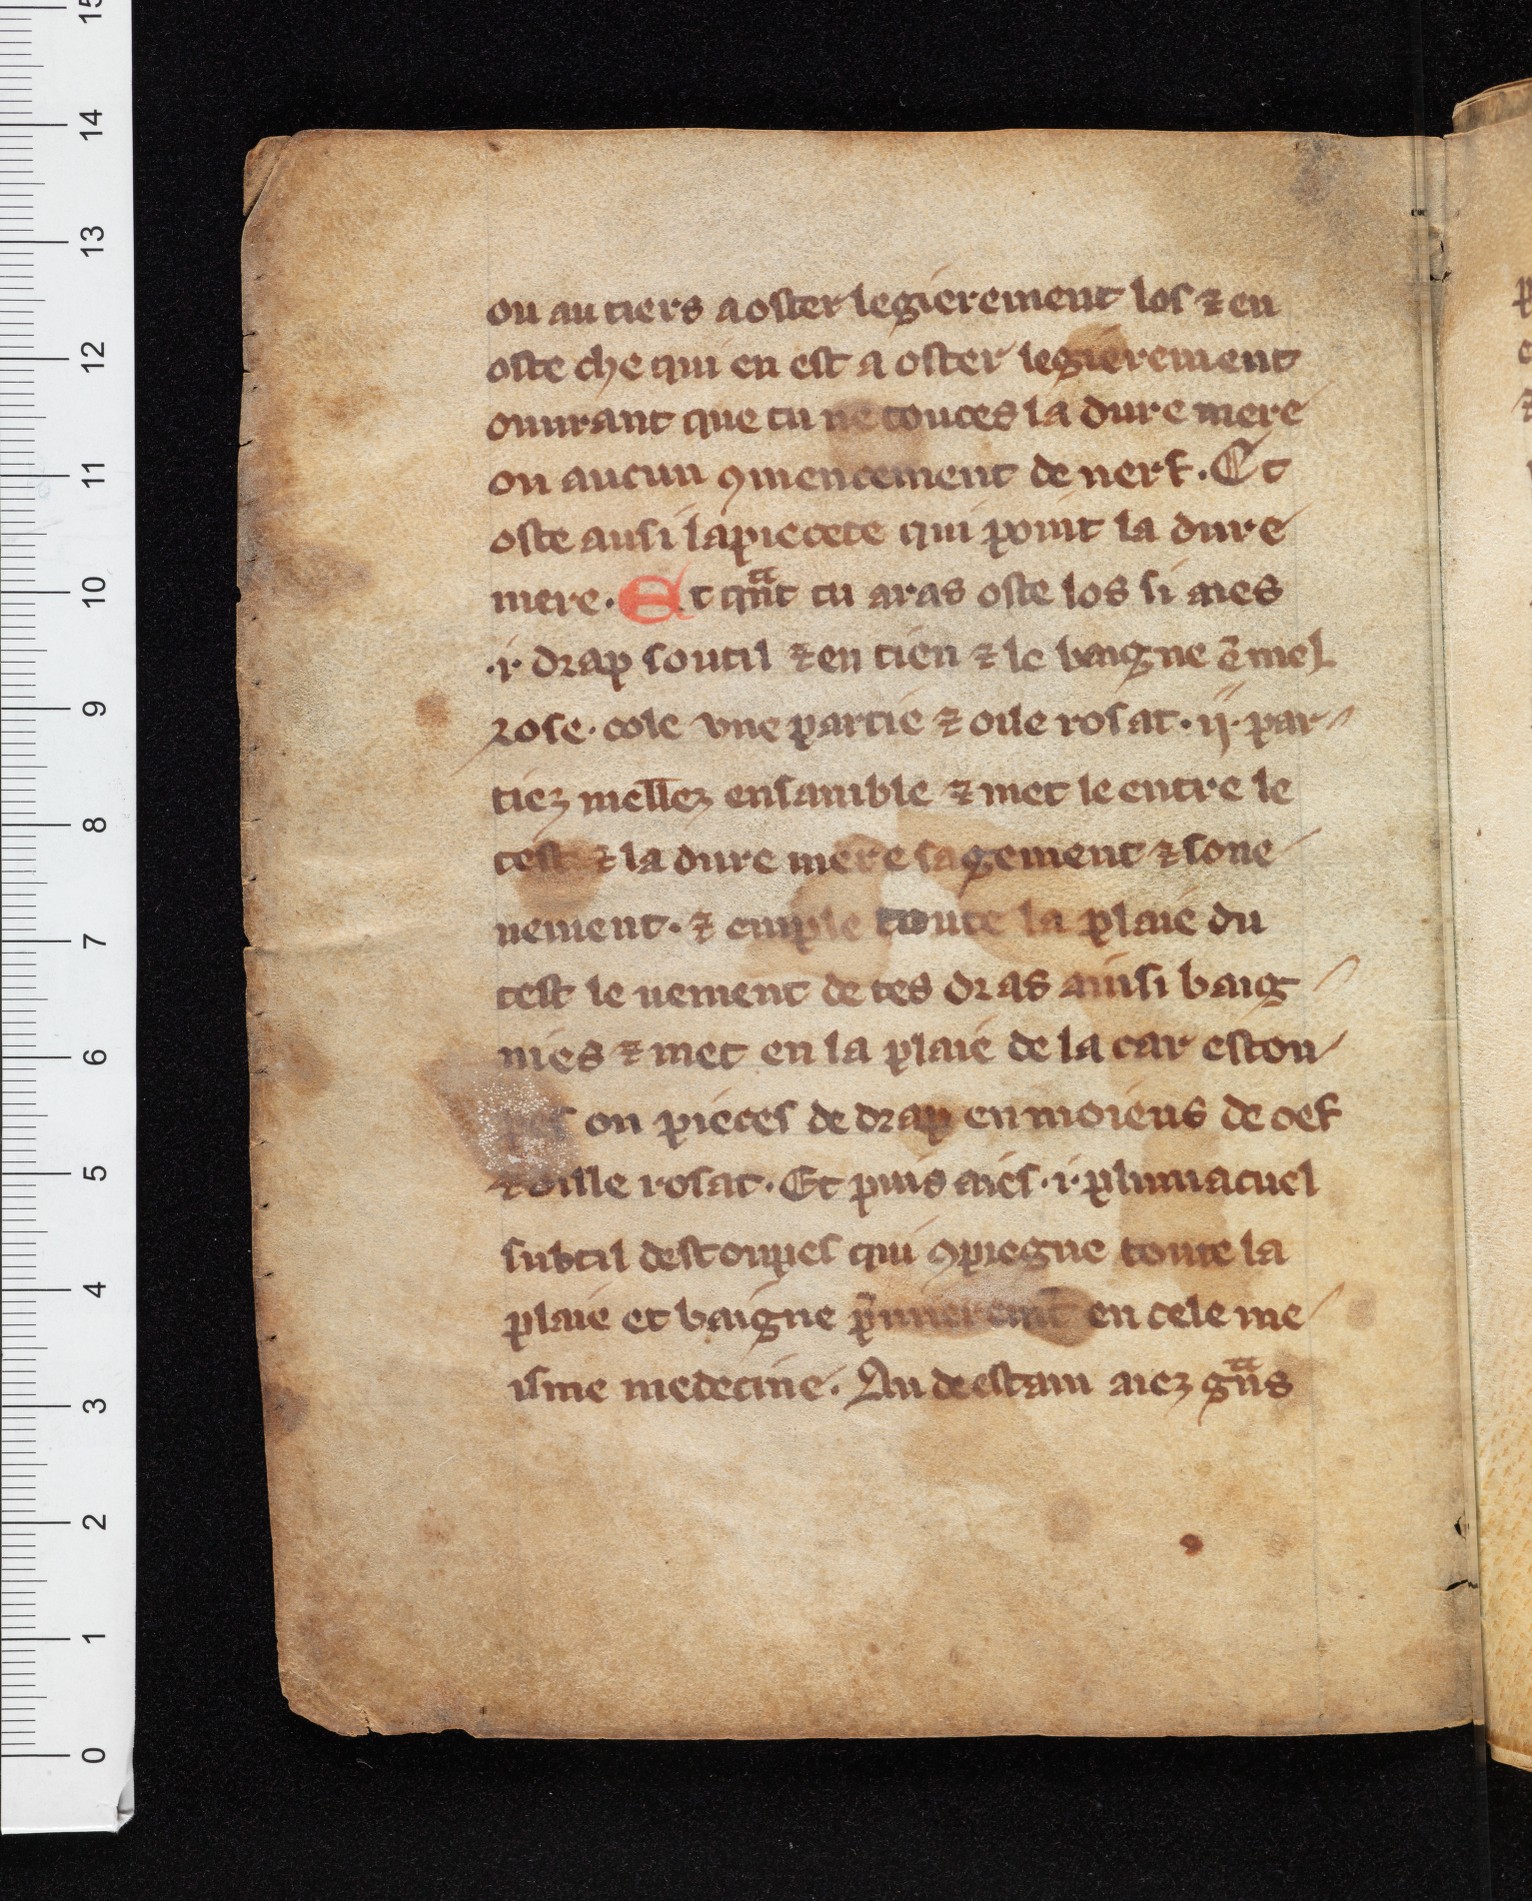 ou au tiers a oster legierement los ⁊ en
oste che qui en est a oster legierement
ouurant que tu ne touces la dure mere
ou aucun ꝯmencement de nerf. Et
oste ausi la piecete qui point la dure
mere. Et qᷓnt tu aras oste los si aies
.i. drap soutil ⁊ en tien ⁊ le baigne ē mel
rose. cole vne partie ⁊ oile rosat. ij. par
tiez mellez ensamble ⁊ met le entre le
test ⁊ la dure mere sagement ⁊ soue
uement. ⁊ emple toute la plaie du
test le uement de tes dras ainsi baig
nies ⁊ met en la plaie de la car estou
pes ou pieces de drap en moieus de oef
⁊ oille rosat. Et puis aies .i. plumacuel
subtil destoupes qui ꝯpregne toute la
plaie et baigne p̄mieremt en cele me
isme medecine. Au deestain aiez gᷓns
15
14
13
12
11
10
9
8
7
6
5
4
3
2
1
0